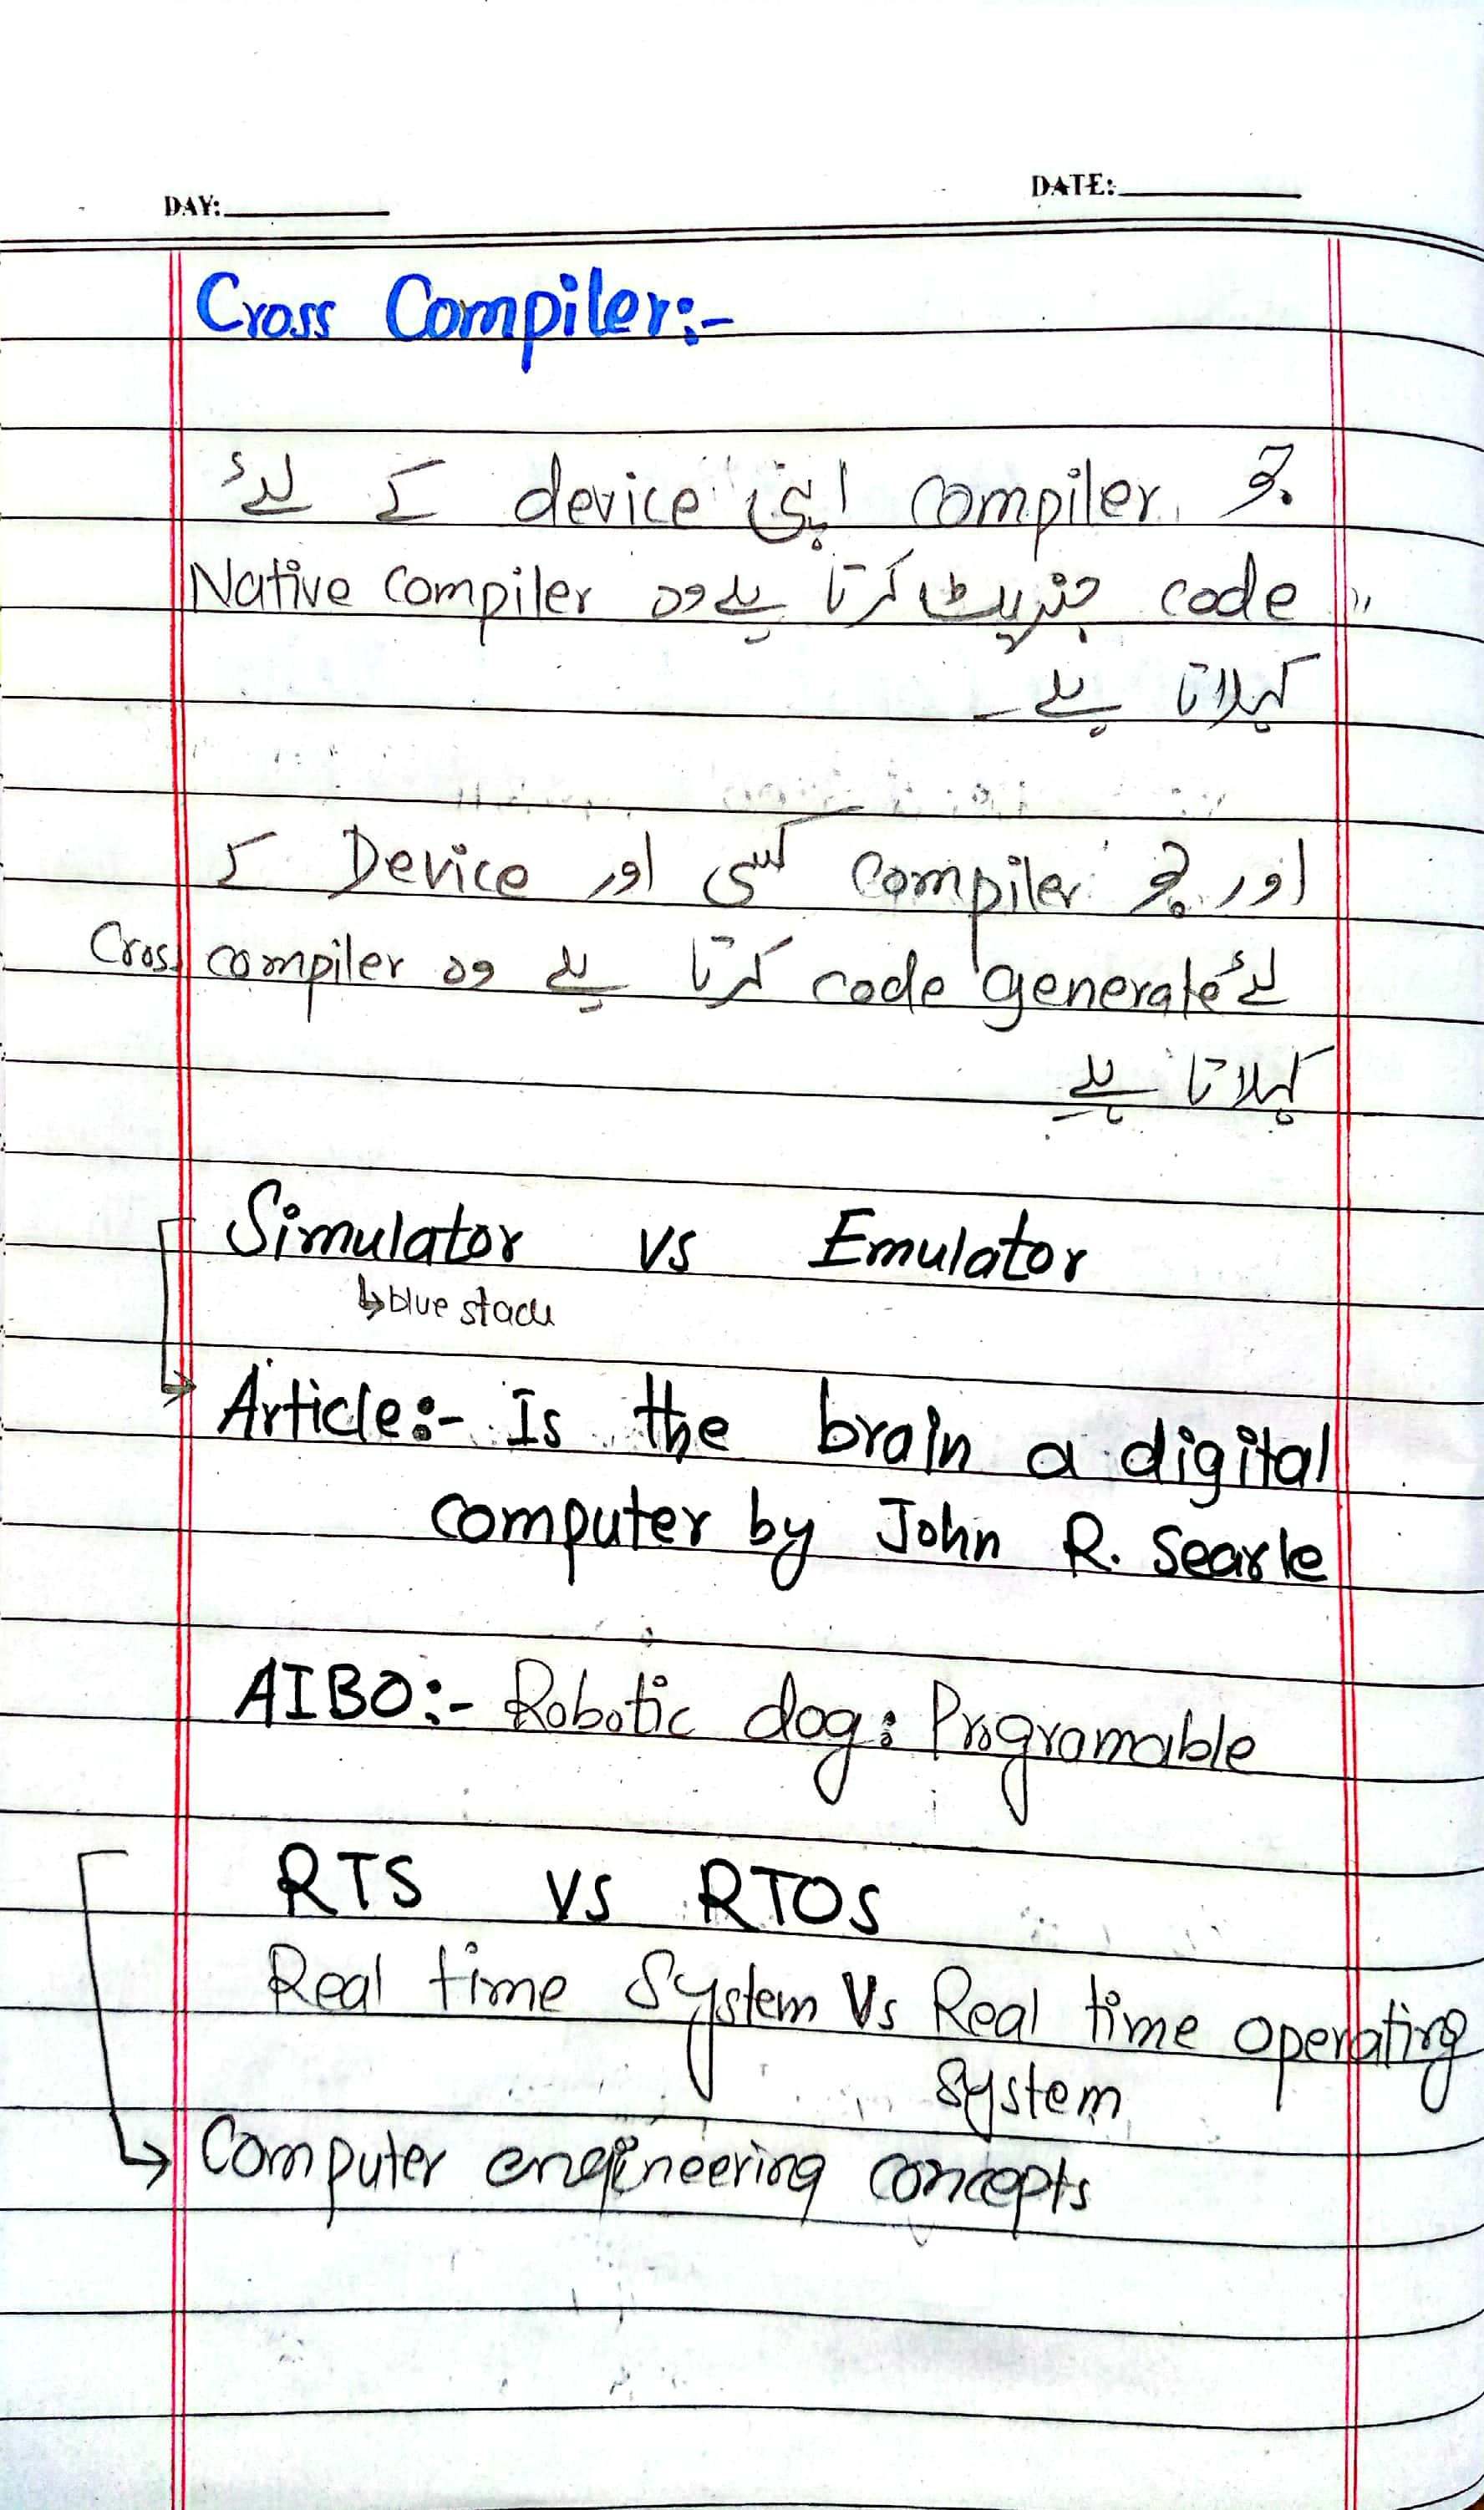 DAY:
DATE:
Cross Compiler:-
جو compiler اپنی device کے لئے
code جنریٹ کرتا ہے وہ Native Compiler
کہلاتا ہے ۔
اور جو Compiler کسی اور Device کے
لئے code generate کرتا ہے وہ Cross compiler
کہلاتا ہے
Simulator vs Emulator
↳ blue stack
Article:- Is the brain a digital
computer by John R. Searle
AIBO:- Robotic dog: Programable
RTS vs RTOS
Real time System Vs Real time operating
System
→ Computer engineering concepts